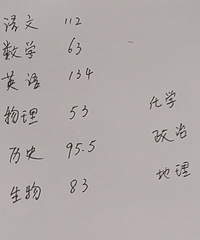 语文 112
数学 63
英语 134
物理 53
化学
历史 95.5
政治
生物 83
地理